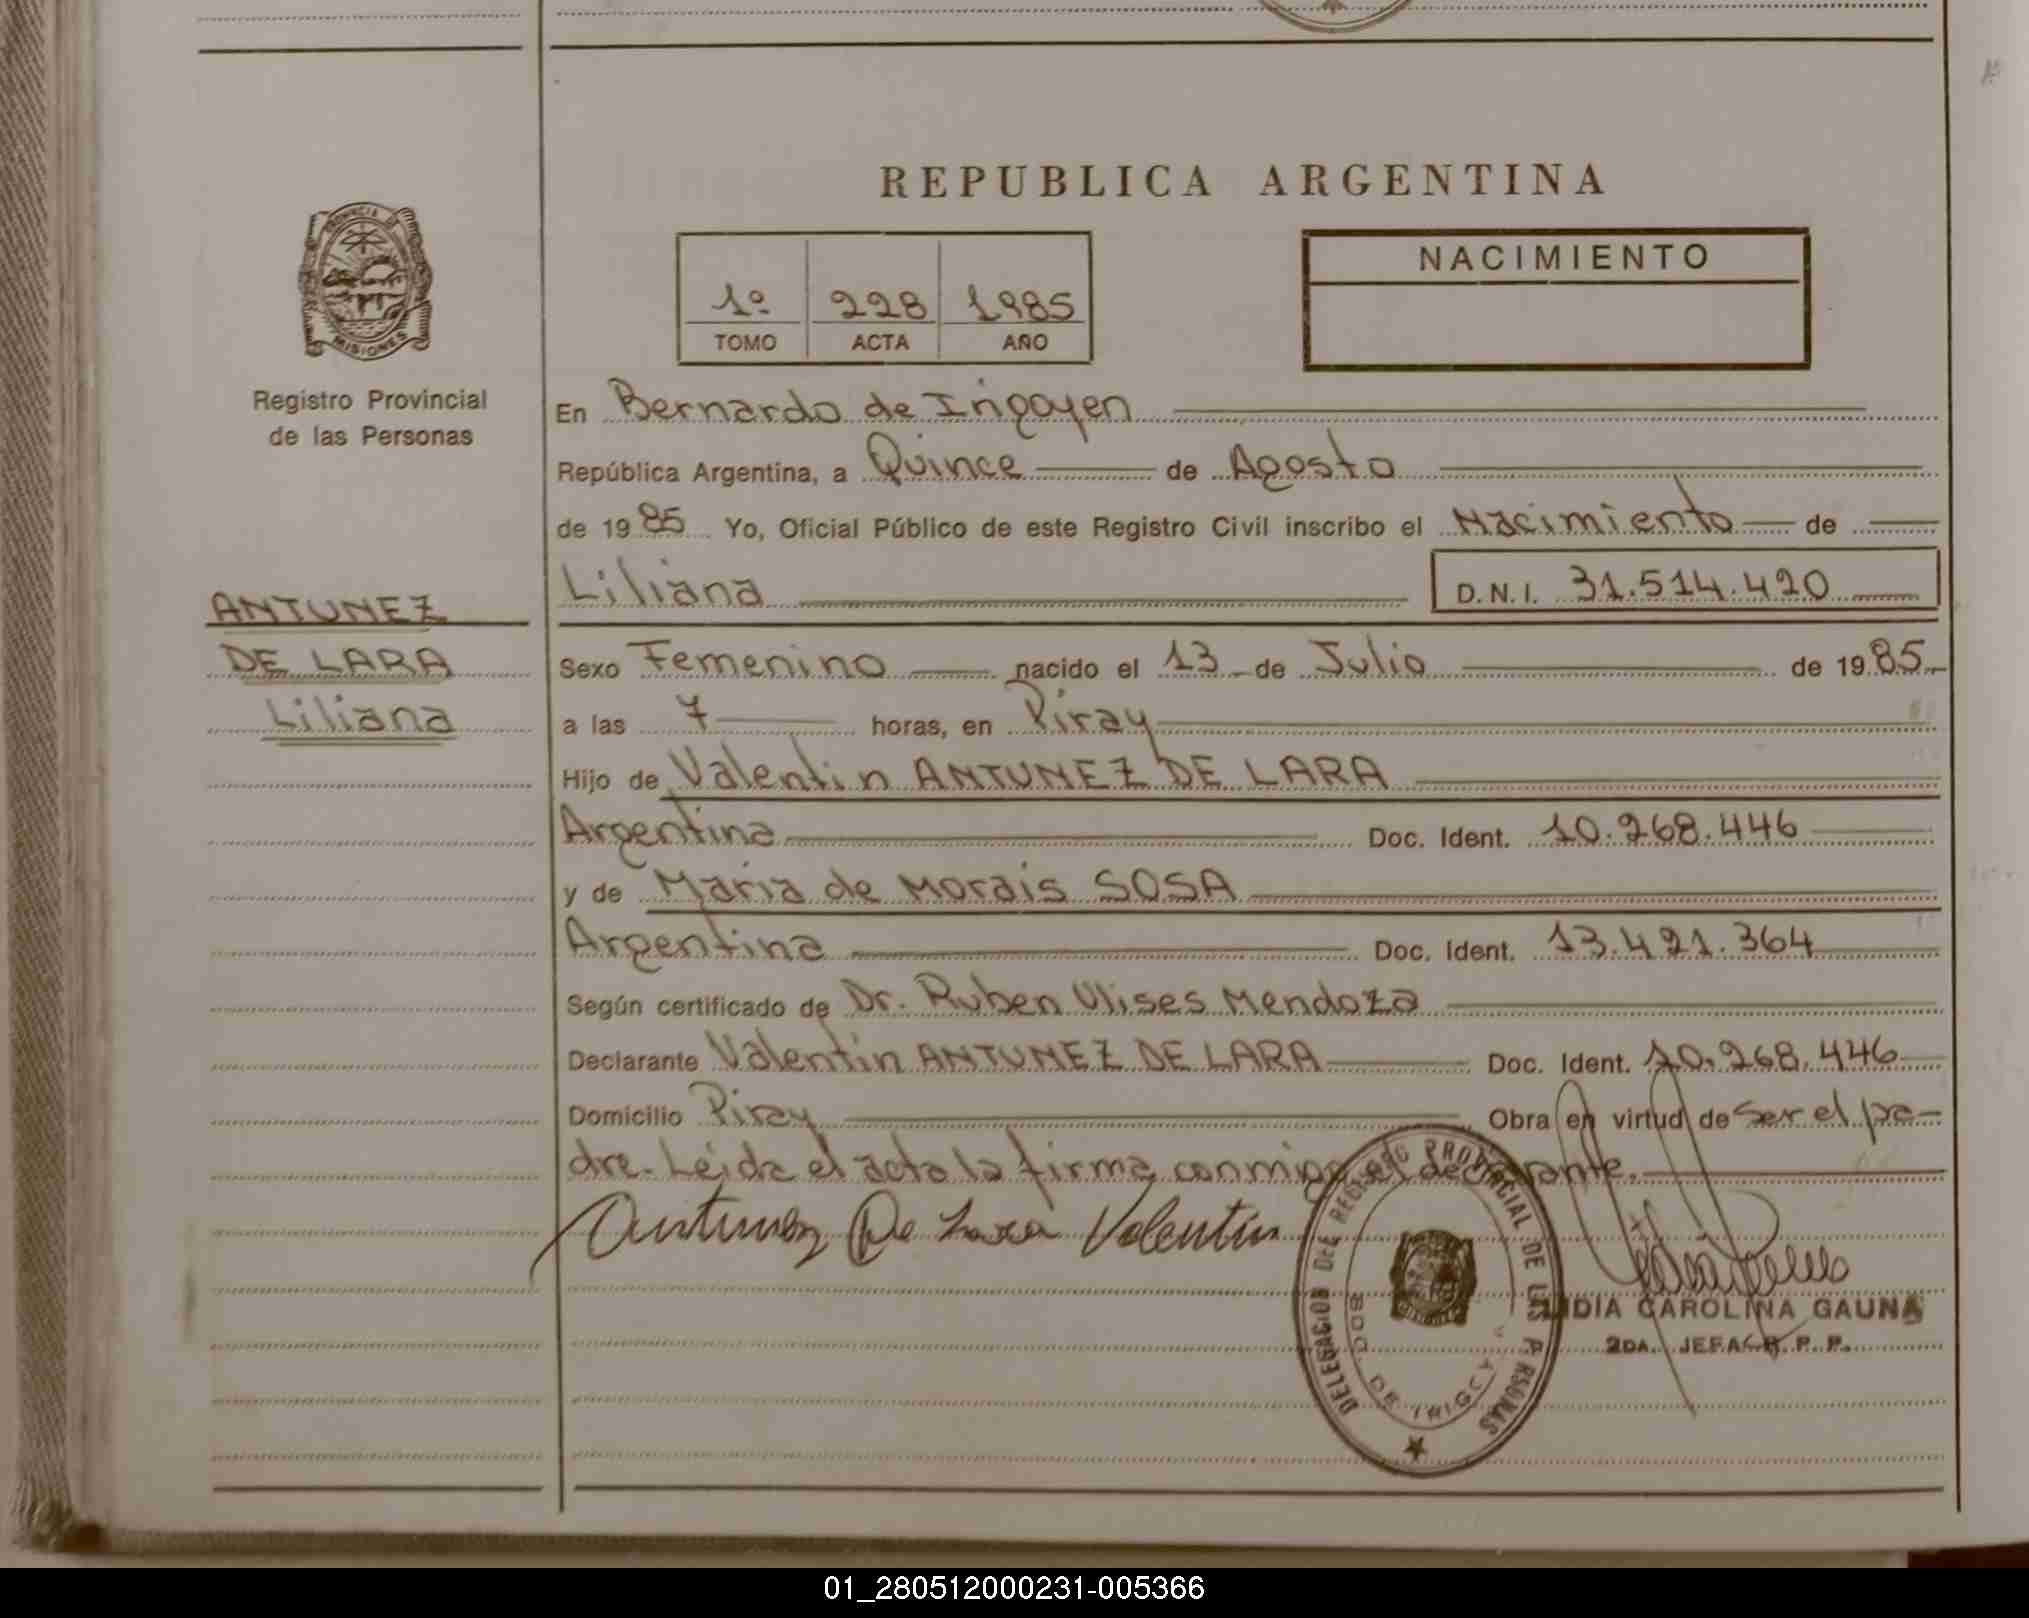 REPUBLICA ARGENTINA
PROVINCIA DE MISIONES
Registro Provincial
de las Personas
1º 228 1985
TOMO ACTA AÑO
NACIMIENTO
En Bernardo de Irigoyen
República Argentina, a Quince de Agosto
de 1985 Yo, Oficial Público de este Registro Civil inscribo el Nacimiento de
Liliana D.N.I. 31.514.420
ANTUNEZ
DE LARA
Liliana
Sexo Femenino nacido el 13 de Julio de 1985
a las 7 horas, en Piray
Hijo de Valentin ANTUNEZ DE LARA
Argentina Doc. Ident. 10.268.446
y de Maria de Morais SOSA
Argentina Doc. Ident. 13.421.364
Según certificado de Dr. Ruben Ulises Mendoza
Declarante Valentin ANTUNEZ DE LARA Doc. Ident. 10.268.446
Domicilio Piray Obra en virtud de ser el pa-
dre. Leida el acta la firma conmigo el declarante.
Antunez De Lara Valentin
DELEGACION DEL REGISTRO PROVINCIAL DE LAS PERSONAS
BDO. DE IRIGOYEN
LIDIA CAROLINA GAUNA
2DA. JEFA R. P. P.
01_280512000231-005366